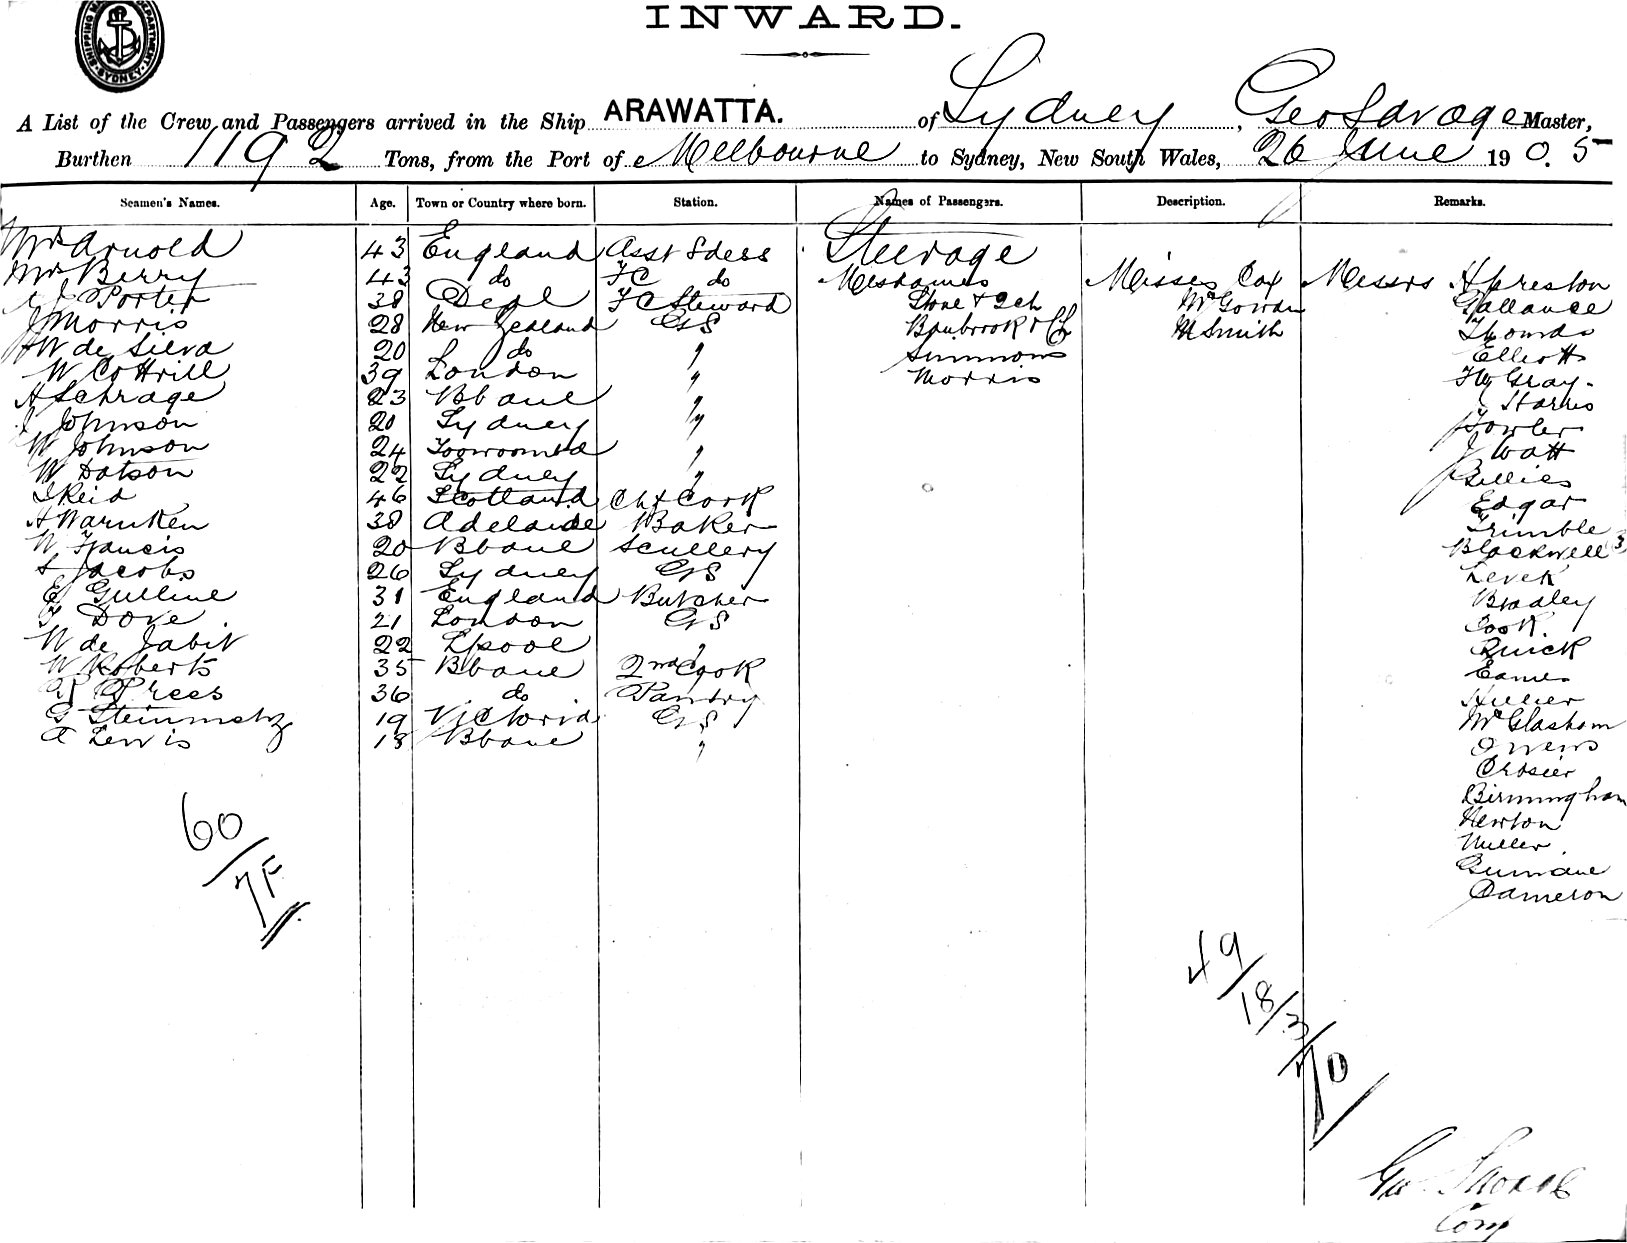 SHIPPING MASTER'S DEPARTMENT SYDNEY
INWARD.
A List of the Crew and Passengers arrived in the Ship ARAWATTA. of Sydney, Geo Savage Master,
Burthen 1192 Tons, from the Port of Melbourne to Sydney, New South Wales, 26 June 1905
Seamen's Names. Age. Town or Country where born. Station. Names of Passengers. Description. Remarks.
Mrs Arnold 43 England Asst Sdess Steerage
Mrs Berry 43 do FC do Mesdames Misses Cox Messrs H Preston
Porter 38 Deal FC Steward Stone & 2ch McGowan Gallance
J Morris 28 New Zealand GS & Ch M Smith Thomas
W de Silva 20 do " Simmons Elliott
W Cottrill 39 London " Morris Gray
H Schrage 23 Bbane " Harris
J Johnson 20 Sydney " Fowler
W Johnson 24 Toowoomba " J Watt
W Dotson 22 Sydney " Gillies
J Reid 46 Scotland Chf Cook Edgar
H Warnken 38 Adelaide Baker Trimble
W Francis 20 Bbane Scullery Blackwell (3
S Jacobs 26 Sydney GS Levek
E Gulline 31 England Butcher Bradley
F Dove 21 London GS Cook.
W de Jabit 22 Lpool " Quick
W Roberts 35 Bbane 2nd Cook Eames
R Prees 36 do Pantry Hillier
G Steinmetz 19 Victoria GS McGlasham
A Lewis 18 Bbane " Owens
Crosier
Birmingham
Newton
Miller
Cameron
60
7F
49
18/3
70
Geo Savage
Comr